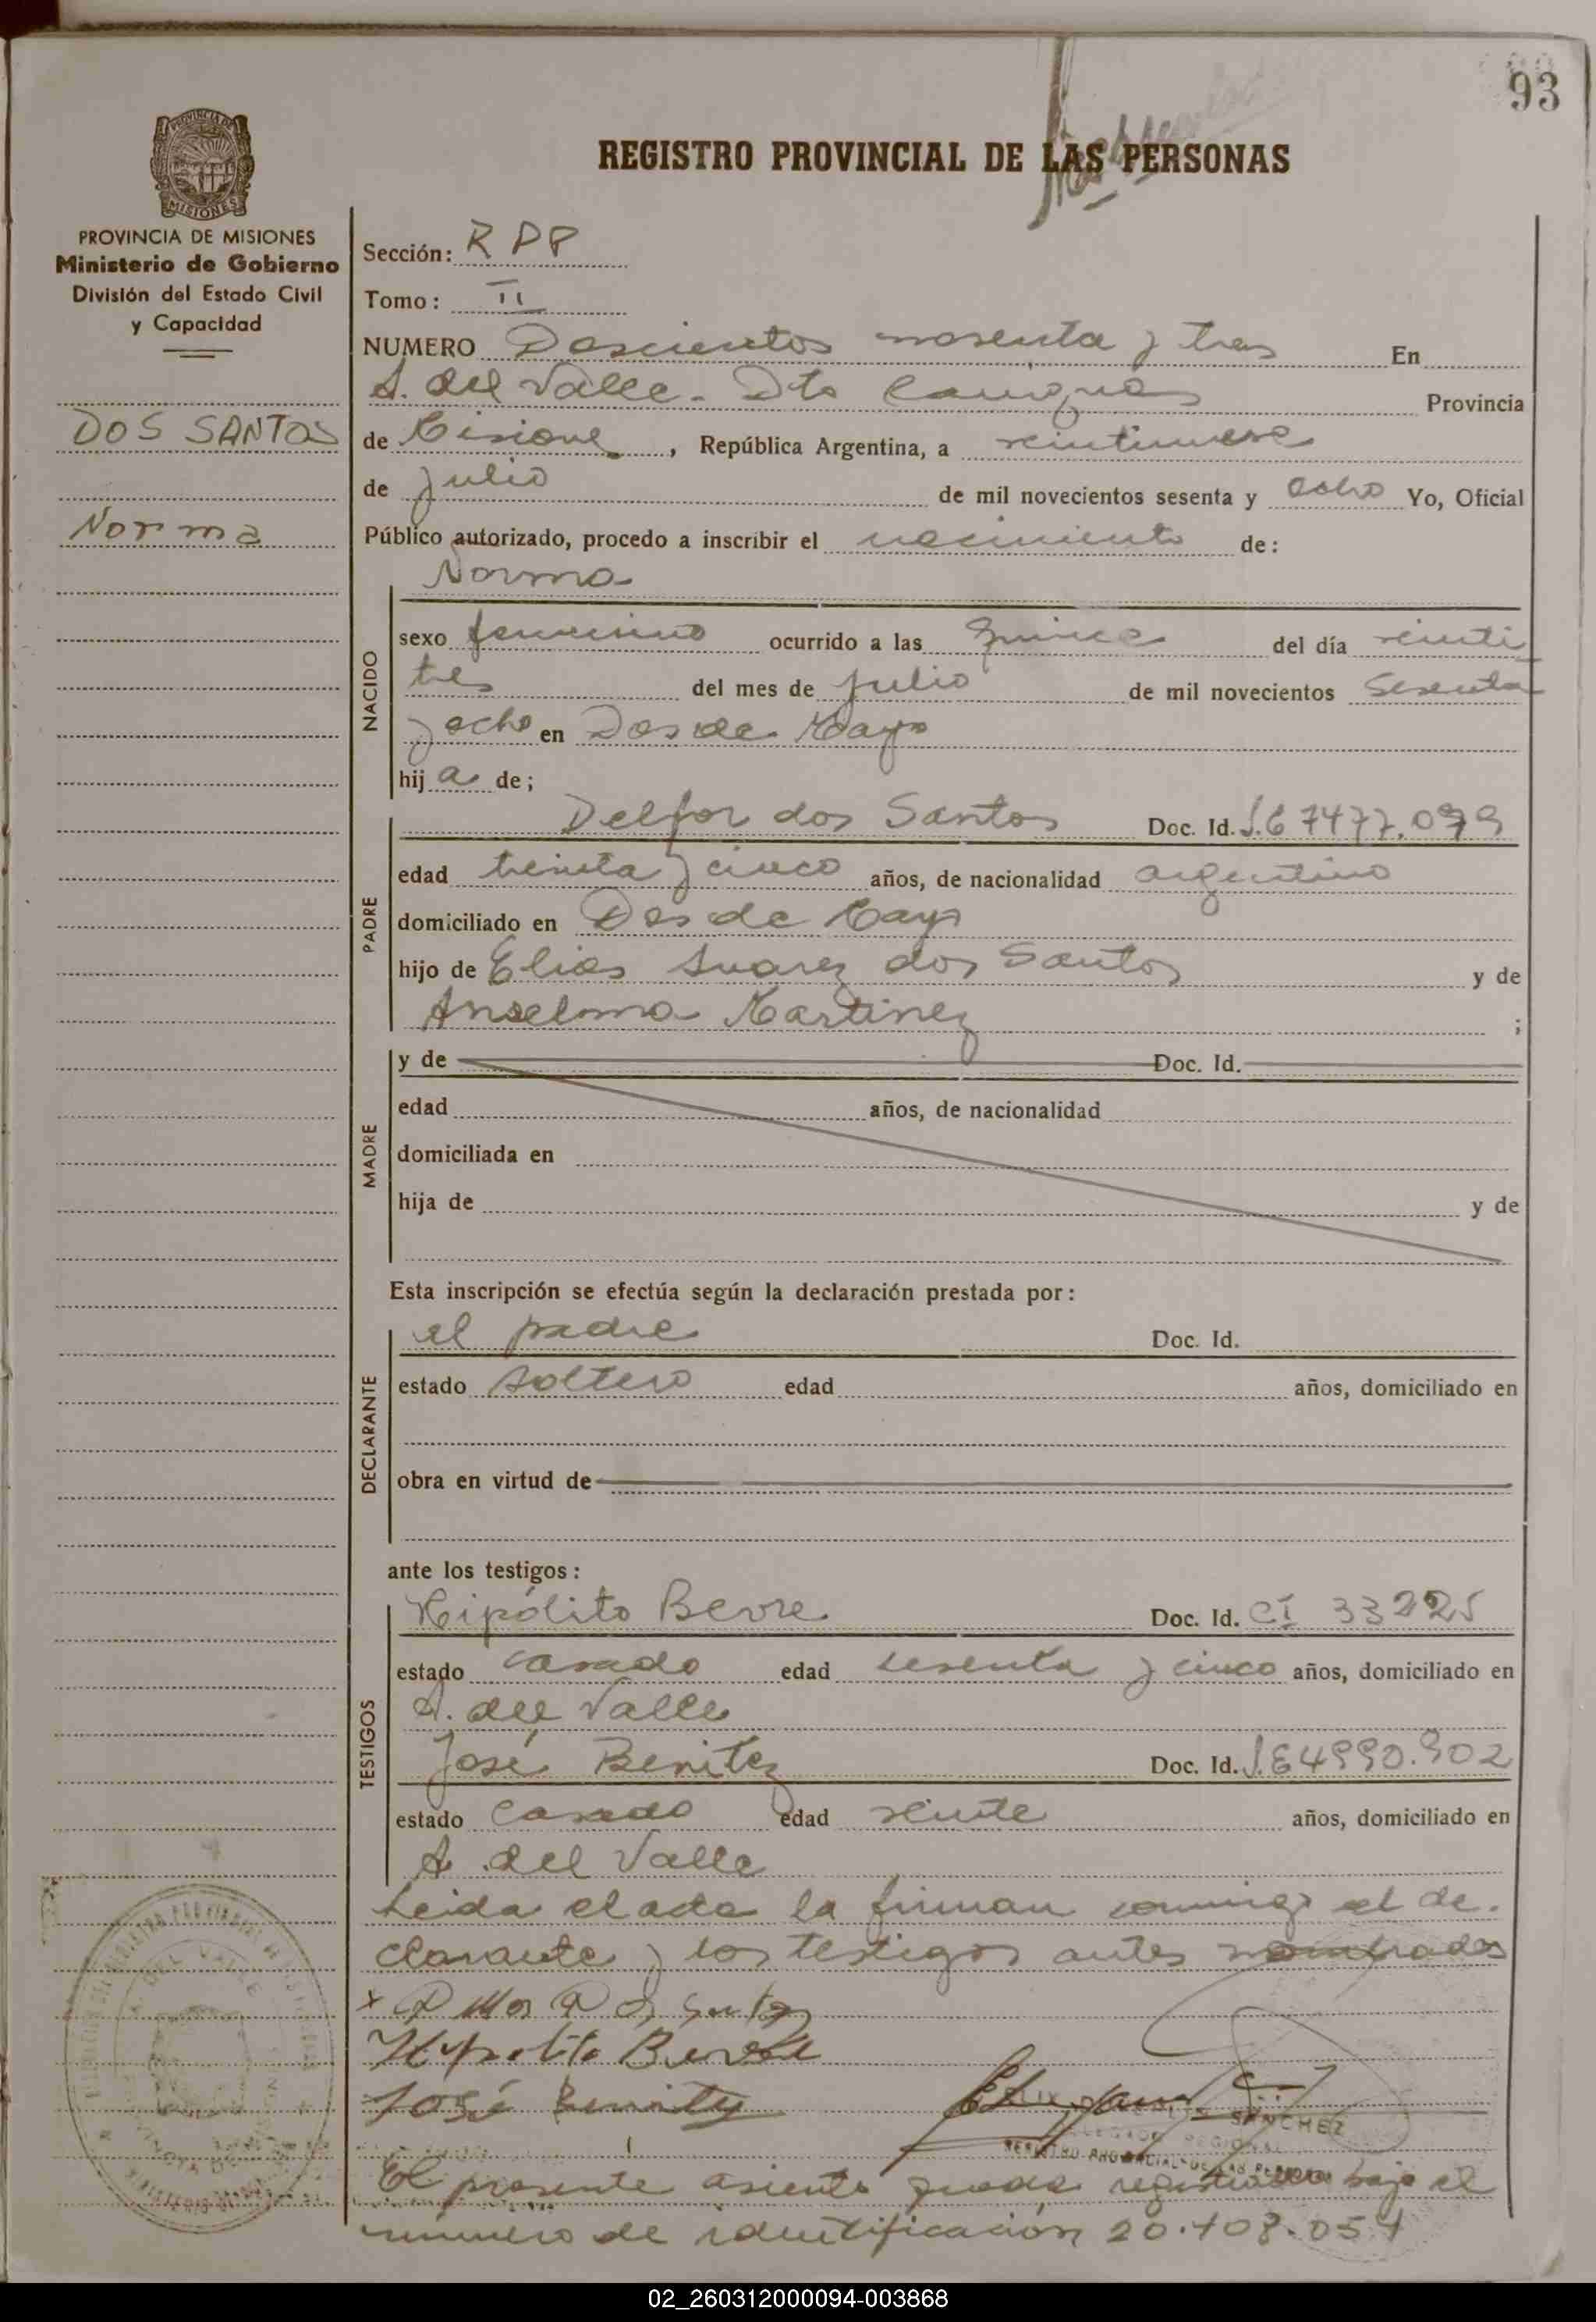 93
REGISTRO PROVINCIAL DE LAS PERSONAS
PROVINCIA DE MISIONES
Ministerio de Gobierno
División del Estado Civil
y Capacidad
DOS SANTOS
Norma
Sección: R P P
Tomo: II
NUMERO Doscientos nosenta y tres En
A. del Valle - Dto Cainguas Provincia
de Misiones, República Argentina, a veintinueve
de julio de mil novecientos sesenta y ocho Yo, Oficial
Público autorizado, procedo a inscribir el nacimiento de:
Norma
NACIDO
sexo femenino ocurrido a las quince del día veinti
tres del mes de julio de mil novecientos sesenta
y ocho en Dos de Mayo
hij a de;
PADRE
Delfor dos Santos Doc. Id.
edad treinta y cinco años, de nacionalidad argentino
domiciliado en Dos de Mayo
hijo de Elias Suarez dos Santos y de
Anselma Martinez ;
MADRE
y de Doc. Id.
edad años, de nacionalidad
domiciliada en
hija de y de
Esta inscripción se efectúa según la declaración prestada por:
DECLARANTE
el padre Doc. Id.
estado soltero edad años, domiciliado en
obra en virtud de
ante los testigos:
TESTIGOS
Hipólito Bevre Doc. Id. CI 33225
estado casado edad sesenta y cinco años, domiciliado en
A. del Valle
José Benitez Doc. Id.
estado casado edad veinte años, domiciliado en
A. del Valle
Leida el acta la firman conmigo el de-
clarante y los testigos antes nombrados
Hipolito
José Benitez
SANCHEZ
DELEGADO REGIONAL
REGISTRO PROVINCIAL DE LAS PERSONAS
El presente asiento queda registrado bajo el
número de identificación 20.408.054
02_260312000094-003868